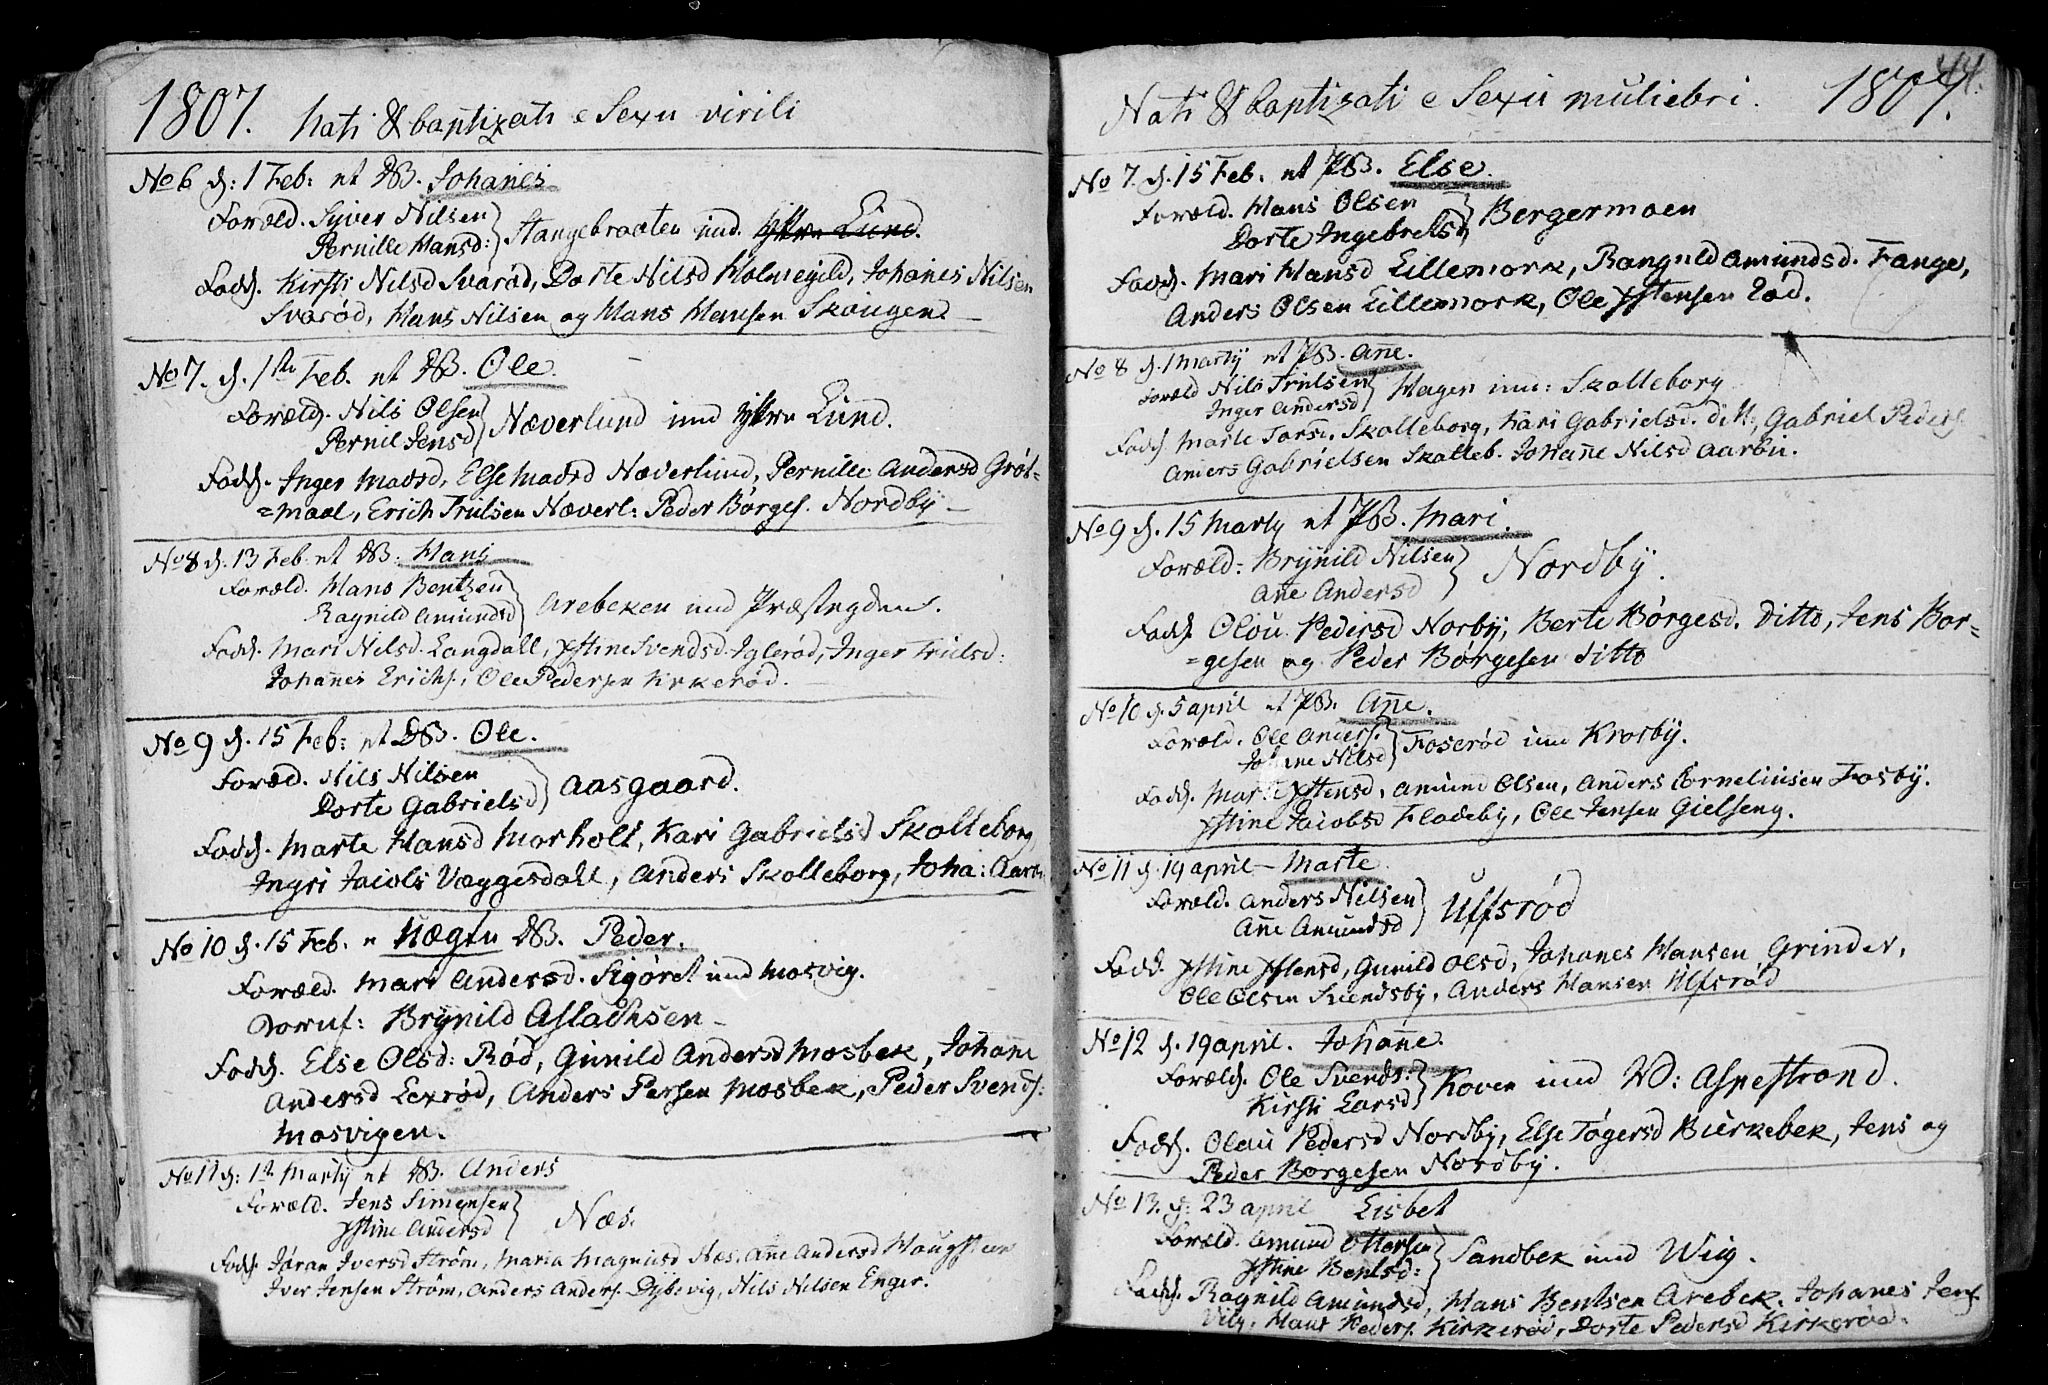 1807. Nati & baptizati e Sexu virili
No 6 d: 1 Feb: et DB. Johanes
Foræld. Syver Nilsen
Pernille Hansd: Stangebraaten und. Yttre Lund.
Fadd. Kirsti Nilsd Svarød, Dorte Nilsd Holmegild, Johanes Nilsen
Svarød, Hans Nilsen og Hans Hansen Skougen.
No 7. d. 1ste Feb. et DB. Ole
Foræld. Nils Olsen
Pernil Jensd Næverlund und Yttre Lund.
Fadd. Inger Madsd, Else Madsd Næverlund, Pernille Andersd Grøt=
=maal, Erich Trulsen Næverl: Peder Børges. Nordby
No 8 d. 13 Feb. et DB. Hans
Foræld. Hans Bentzen
Ragnild Amundsd Arebeken und Præstegden.
Fadd. Mari Nilsd. Langdall, Xstine Svendsd. Iglerød, Inger Trulsd:
Johannes Erichs., Ole Pedersen Kirkerød.
No 9 d. 15 Feb: et DB. Ole.
Foræd. Nils Nilsen
Dorte Gabrielsd Aasgaard.
Fadd. Marte Hansd Morholt, Kari Gabrielsd Skolleborg
Ingri Jacobs Væggesdall, Anders Skolleborg, Joha: Aarb
No 10 d. 15 Feb. Uægte DB. Peder.
Foræld. Mari Andersd. Sigøret und Mosvig.
Doruf: Brynild Aslachsen
Fadd. Else Olsd: Rød, Gunild Andersd Mosbek, Johanne
Andersd Lexrød, Anders Persen Mosbek, Peder Svends:
Mosvigen.
No 11 d: 1te Marty et DB. Anders
Foræld. Jens Simensen
Xstine Andersd Næs.
Fadd. Jøran Iversd Strøm, Maria Magnusd Næs, Anne Andersd Haugsteen
Iver Jensen Strøm, Anders Anders. Dybevig, Nils Nilsen Enger.
44.
Nati & baptizati e Sexu muliebri. 1807.
No 7. d. 15 Feb. et PB. Else.
Foræld. Hans Olsen
Dorte Ingebretsd Bergermoen
Fadd. Mari Hansd Lillemork, Rangnild Amundsd. Fange,
Anders Olsen Lillemork, Ole Xstensen Lød.
No 8 d. 1 Marty et PB. Anne.
Foræld Nils Trulsen
Inger Andersd Hagen und: Skolleborg
Fadd. Marte Torst. Skolleborg, Kari Gabrielsd. ditt., Gabriel Peders.
Anders Gabrielsen Skolleb. Johanne Nilsd Aarbu.
No 9 d. 15 Marty et PB. Mari.
Foræld: Brynild Nilsen
Anne Andersd Nordby.
Fadd. Olou Pedersd Norby, Berte Børgesd. Ditto, Jens Bør=
=gesen og Peder Børgesen ditto
No 10 d. 5 April et PB. Anne.
Foræld. Ole Anders.
Johanne Nilsd Foserød und Krosby.
Fadd. Marte Xstensd, Amund Olsen, Anders Corneliusen Fosby.
Xstine Jacobsd Fladeby, Ole Jensen Gielseng.
No 11 d. 19 April – Marte
Foræld. Anders Nilsen
Anne Amundsd Ulfsrød
Fadd. Xstine Xstensd, Gunild Olsd, Johanes Hansen Grinder,
Ole Olsen Svendsby, Anders Hansen Ulfsrød
No 12 d. 19 April. Johanne.
Foræld. Ole Svends:
Kirsti Larsd Koven und V: Aspestrand.
Fadd. Olau Pedersd Nordby, Else Tøgersd Burkebek, Jens og
Peder Borgesen Nordby.
No 13. d: 23 April Lisbet
Foræld. Amund Ottersen
Xstine Bentsd: Sandbek und Wiig.
Fadd. Ragnild Amundsd, Hans Bentsen Arebek. Johanes Jens.
Viig, Hans Peders. Kirkerød, Dorte Pedersd Kirkerød.